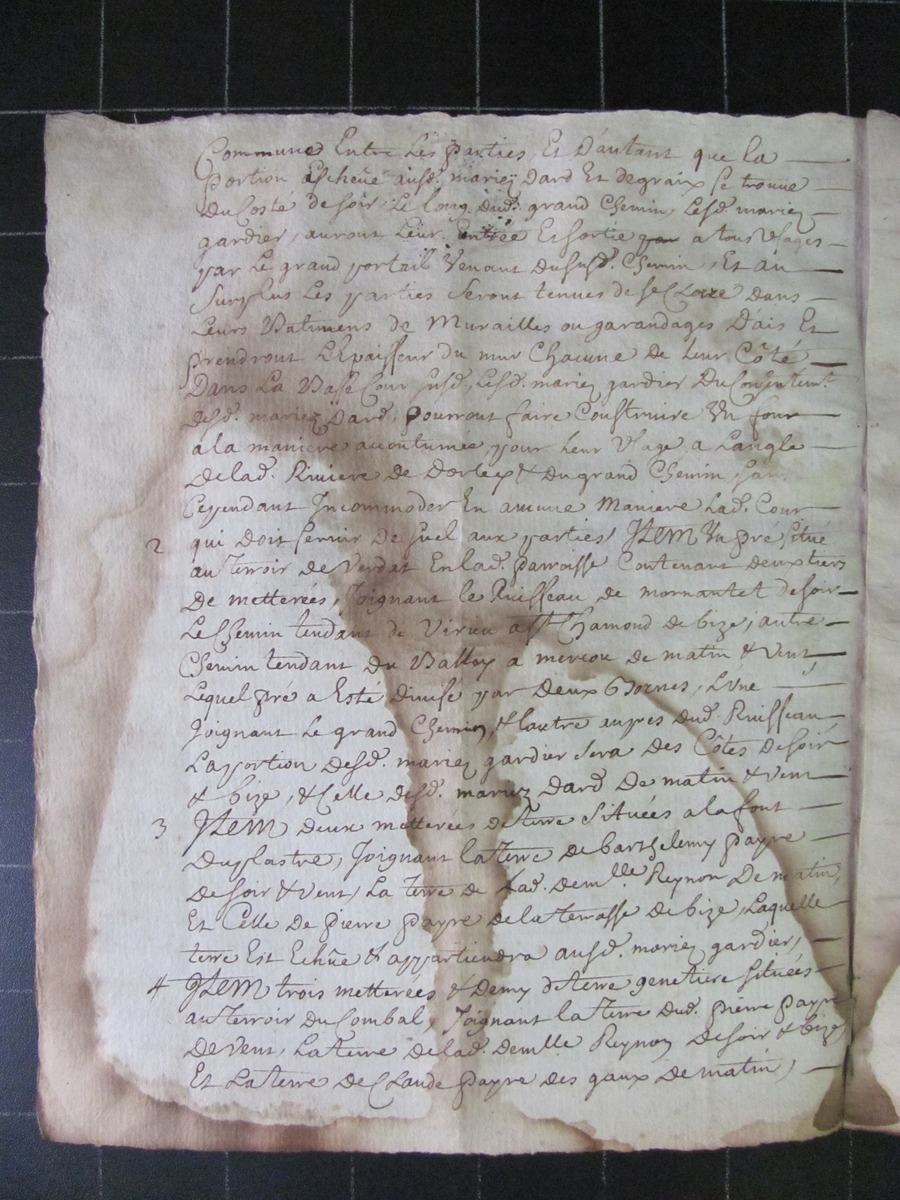 Commune Entre Les parties, Et D'autant que la
portion Escheüe ausd. mariez Dard Et degraix se trouve
Du Costé de soir, Le long dud. grand Chemin, Lesd. mariez
gardier, auront Leur Entrée Et sortie par a tous Usages
par Le grand portail Venant du susd. Chemin, Et au
surplus Les parties seront tenues de se Clore Dans
Leurs Batimens de Murailles ou garandages D'ais Et
prendront L'Epaisseur du mur Chacune De Leur Côté
Dans La Basse Cour susd. Lesd. mariez gardier Du Consentemt.
desd. mariez Dard, pourront faire Construire Un four
a la maniere accoutumée, pour Leur Usage a L'angle
De lad. Riviere de Dorley & du grand Chemin, sans
Cependant Incommoder En aucune Maniere Lad. Cour
2 qui doit servir de suel aux parties, Item Un pré situé
au Terroir de Verdat En lad. parroisse Contenant deux tiers
De metterées, Joignant le Ruisseau de mornantet de soir
Le Chemin tendant de Virieu a St. Chamond de bize, autre
Chemin tendant du Battoy a mercou de matin & Vent,
Lequel pré a Esté divisé par Deux Bornes, L'Une
Joignant Le grand Chemin, & l'autre aupres dud. Ruisseau
La portion Desd. mariez gardier sera des Côtés De soir
& bize, & Celle desd. mariez Dard De matin & Vent
3 Item Deux metterées de terre situées a la font
Duplastre, Joignant La Terre de barthelemy payre
De soir & Vent, La terre de Lad. demlle. Reynon De matin,
Et Celle De pierre payre de la terrasse de bize, Laquelle
terre Est Echûe & appartiendra ausd. mariez gardier,
4 Item trois metterées & Demy de terre genetiere situées
au Terroir du Combal, Joignant la Terre dud. pierre payre
De Vent, La terre de lad. demlle Reynon De soir & bize
Et La terre De Claude payre des gaux De matin,